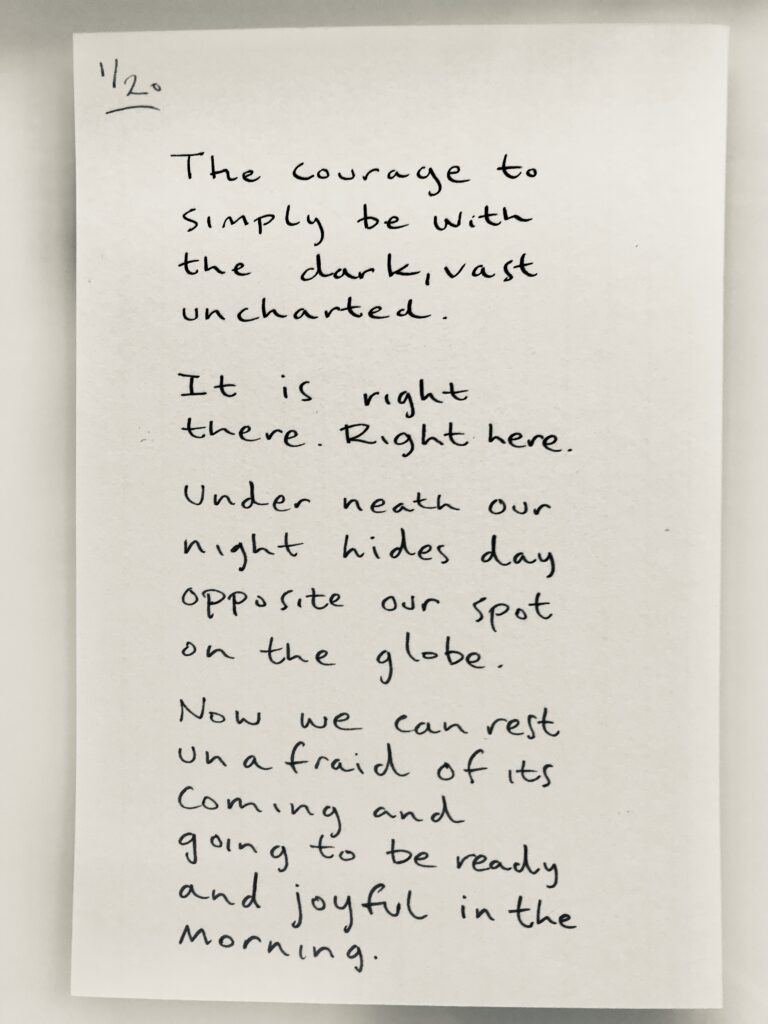 1/20
The courage to
simply be with
the dark, vast
uncharted.
It is right
there. Right here.
Under neath our
night hides day
opposite our spot
on the globe.
Now we can rest
unafraid of its
coming and
going to be ready
and joyful in the
morning.